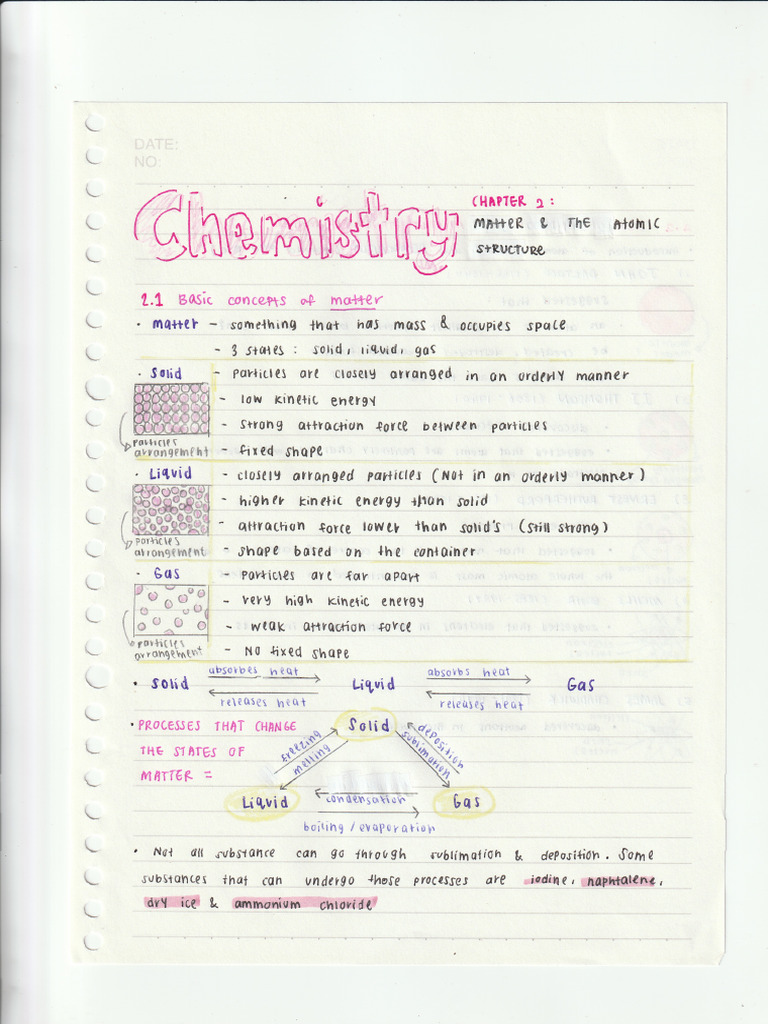 DATE:
NO:
Chemistry
CHAPTER 2:
MATTER & THE ATOMIC
STRUCTURE
2.1 Basic concepts of matter
• matter - something that has mass & occupies space
- 3 states : solid, liquid, gas
• Solid - particles are closely arranged in an orderly manner
- low kinetic energy
- strong attraction force between particles
particles
arrangement - fixed shape
• Liquid - closely arranged particles (Not in an orderly manner)
- higher kinetic energy than solid
- attraction force lower than solid's (still strong)
particles
arrangement - shape based on the container
• Gas - particles are far apart
- very high kinetic energy
- weak attraction force
particles
arrangement - No fixed shape
absorbes heat absorbs heat
• Solid Liquid Gas
releases heat releases heat
• PROCESSES THAT CHANGE
THE STATES OF
MATTER =
Solid
freezing
melting
deposition
sublimation
Liquid condensation Gas
boiling / evaporation
• Not all substance can go through sublimation & deposition. Some
substances that can undergo those processes are iodine, naphtalene,
dry ice & ammonium chloride